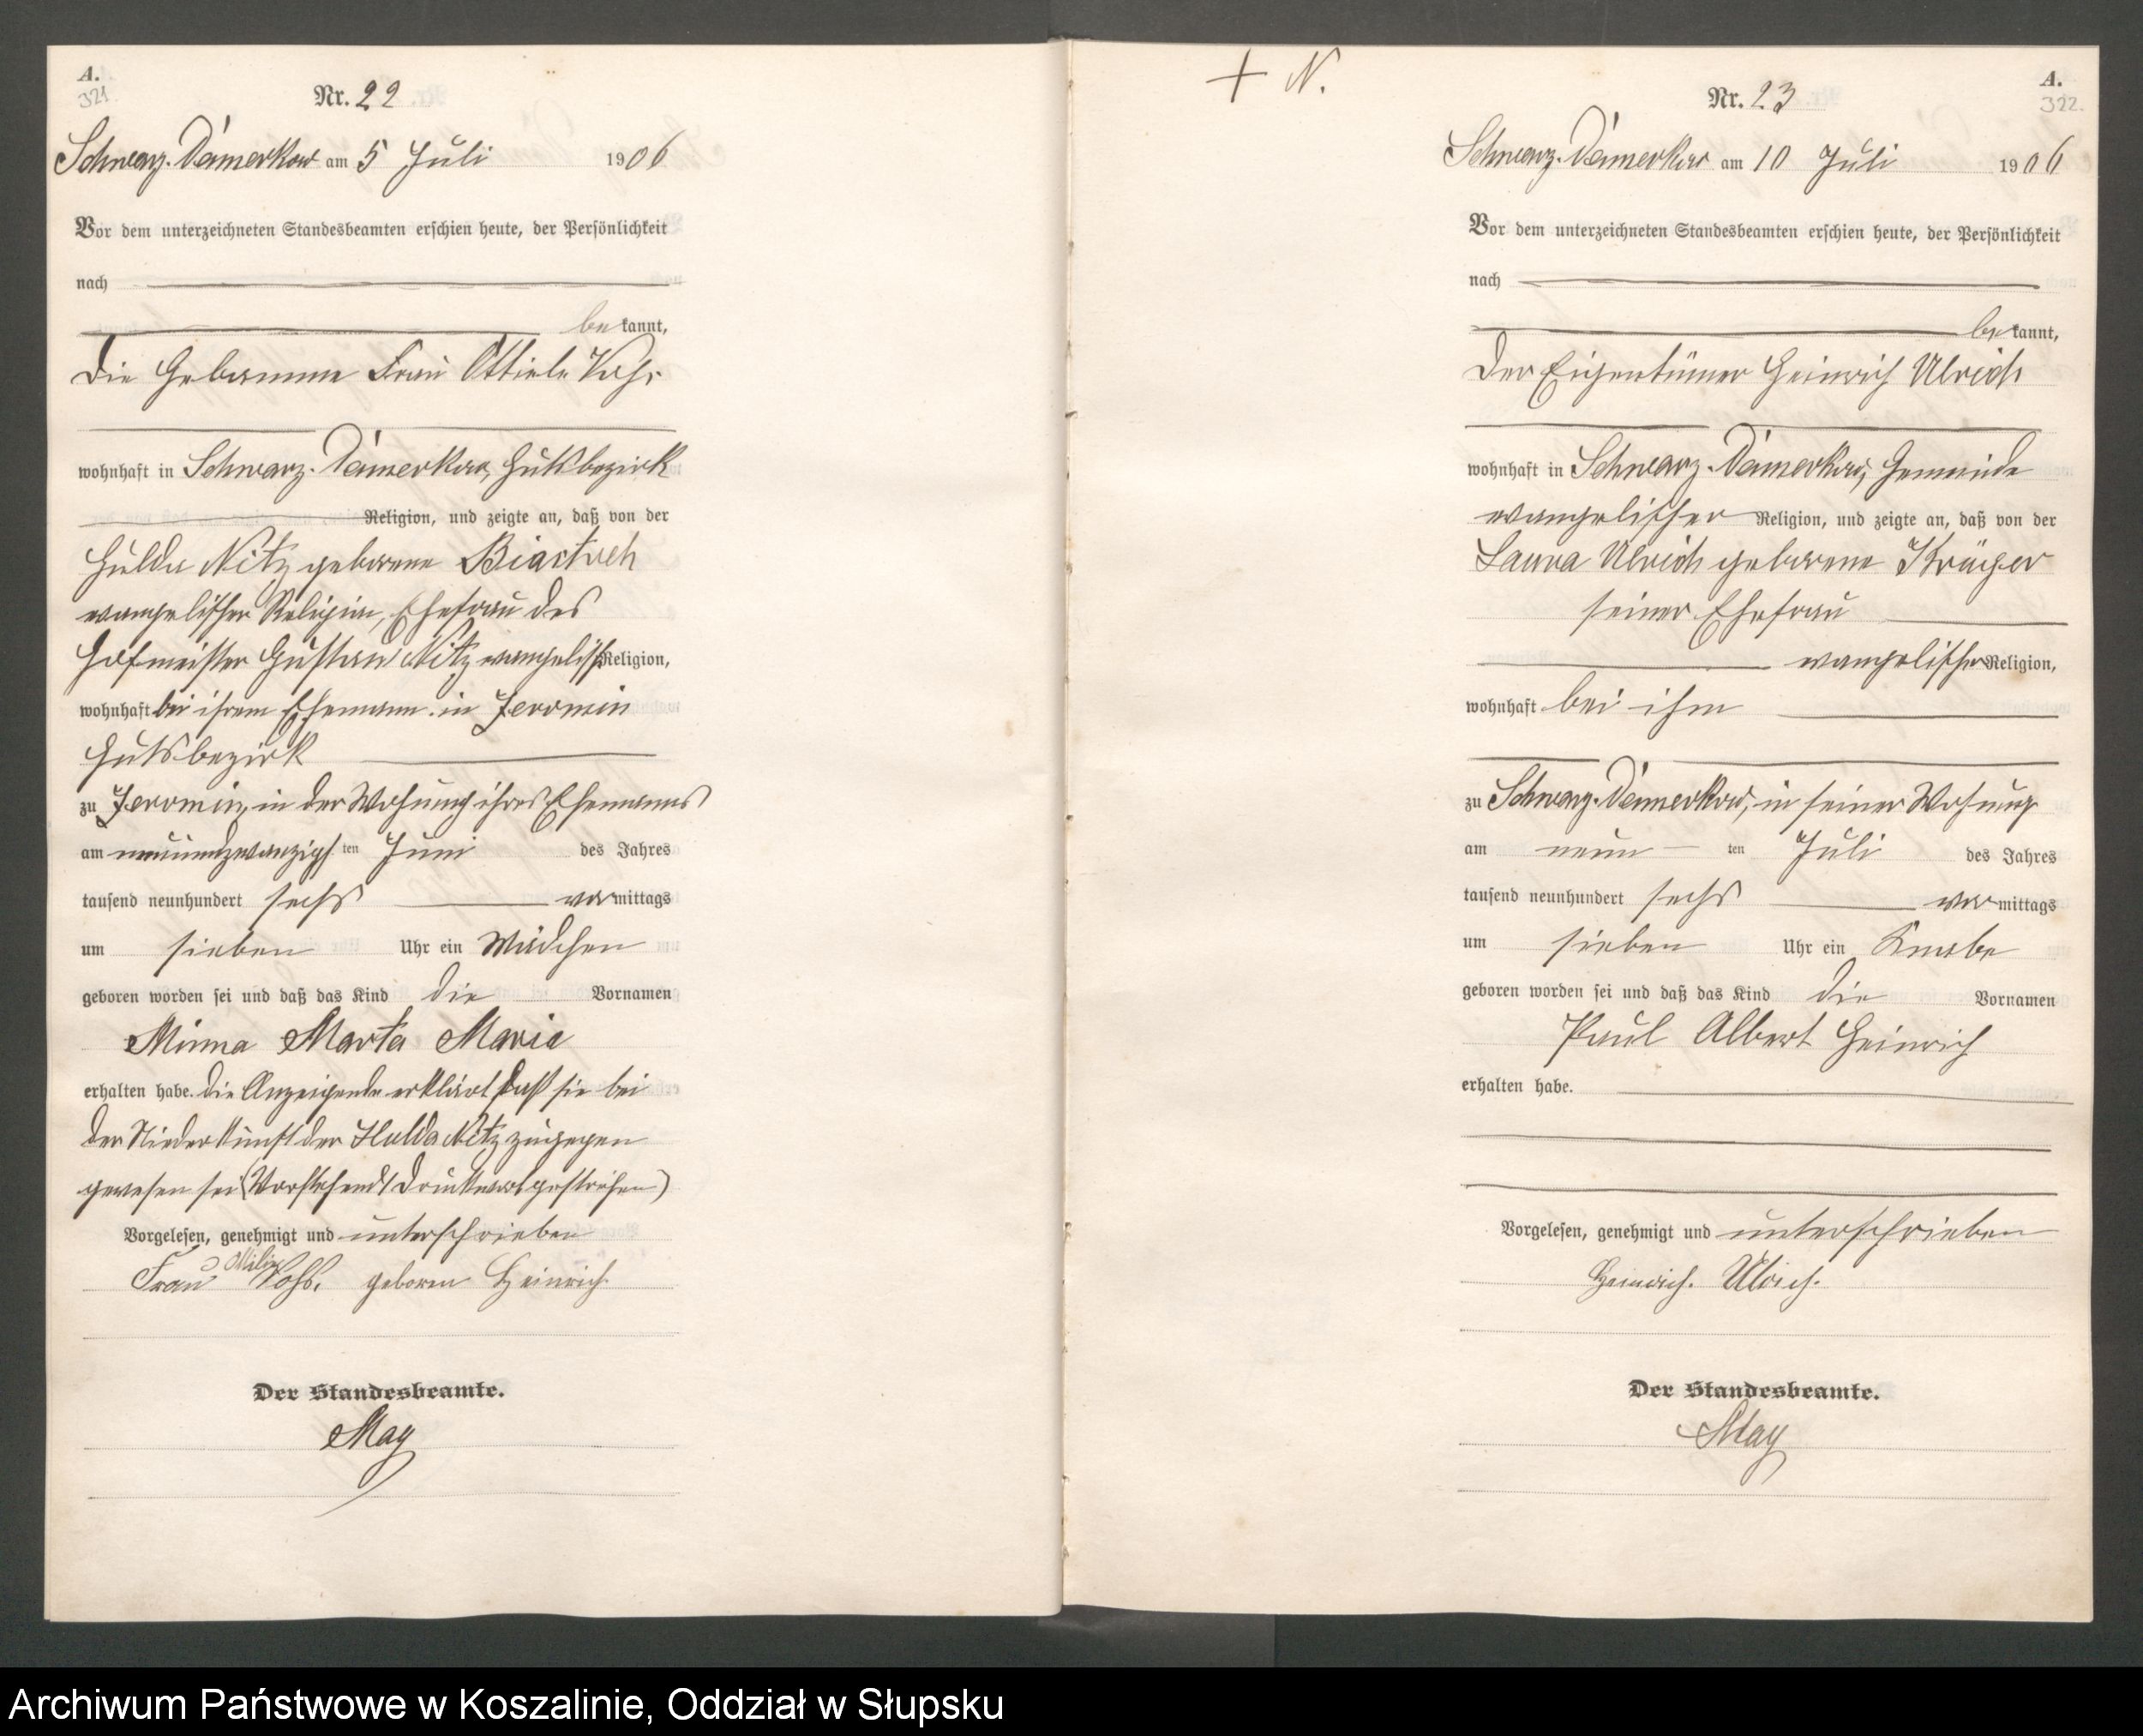 A.
321
Nr. 22
Schwarz-Damerkow am 5 Juli 1906
Vor dem unterzeichneten Standesbeamten erschien heute, der Persönlichkeit
nach
bekannt,
die Hebamme Frau Ottilie
wohnhaft in Schwarz-Damerkow, Gutsbezirk
Religion, und zeigte an, daß von der
Hulda Nitz geborene
evangelischer Religion, Ehefrau des
Hofmeister Gustav Nitz evangelisch Religion,
wohnhaft bei ihrem Ehemann in Jeromin
Gutsbezirk
zu Jeromin, in der Wohnung ihres Ehemannes
am neunundzwanzigsten Juni des Jahres
tausend neunhundert sechs vormittags
um sieben Uhr ein Mädchen
geboren worden sei und daß das Kind die Vornamen
Minna Marta Marie
erhalten habe. Die Anzeigende erklärt, daß sie bei
der Niederkunft der Hulda Nitz zugegen
gewesen sei (Vorstehend 1 Druckwort gestrichen)
Vorgelesen, genehmigt und unterschrieben
Frau geboren Heinrich
Der Standesbeamte.
May
+ N.
A.
322.
Nr. 23
Schwarz-Damerkow am 10 Juli 1906
Vor dem unterzeichneten Standesbeamten erschien heute, der Persönlichkeit
nach
bekannt,
der Eigentümer Heinrich Ulrich
wohnhaft in Schwarz-Damerkow, Gemeinde
evangelischer Religion, und zeigte an, daß von der
Laura Ulrich geborene Krüger
seiner Ehefrau
evangelischer Religion,
wohnhaft bei ihm
zu Schwarz-Damerkow, in seiner Wohnung
am neunten Juli des Jahres
tausend neunhundert sechs vormittags
um sieben Uhr ein Knabe
geboren worden sei und daß das Kind die Vornamen
Paul Albert Heinrich
erhalten habe.
Vorgelesen, genehmigt und unterschrieben
Heinrich. Ulrich.
Der Standesbeamte.
May
Archiwum Państwowe w Koszalinie, Oddział w Słupsku